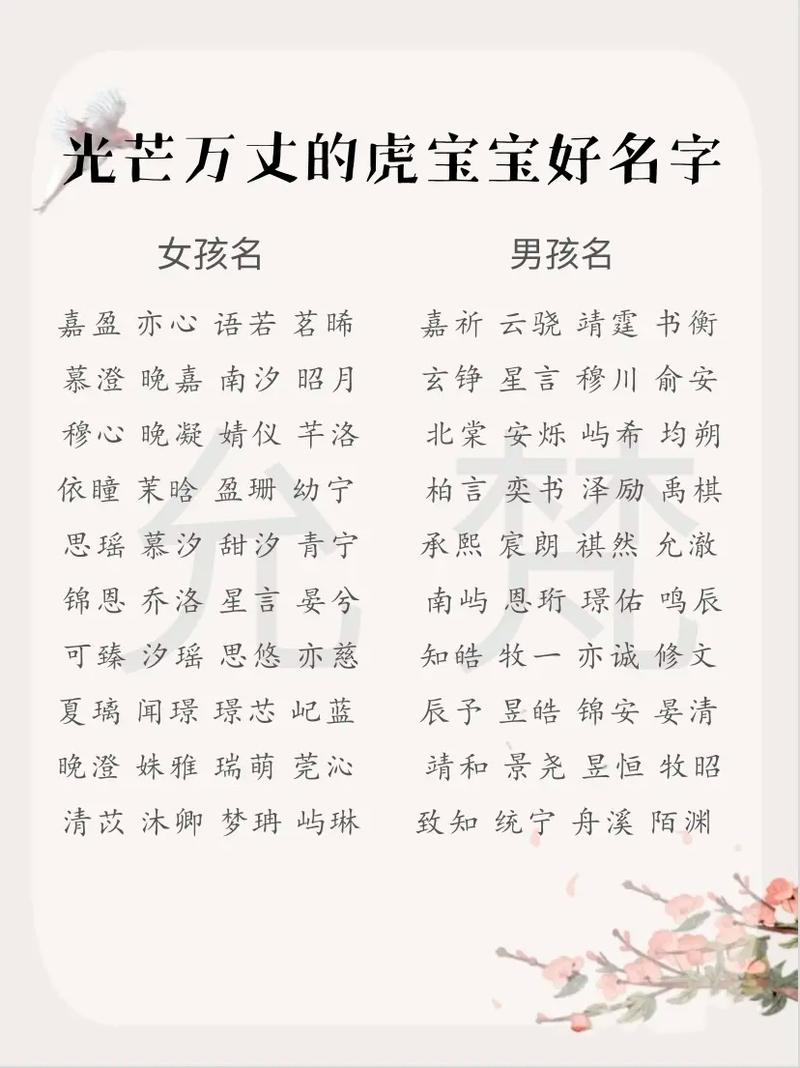 光芒万丈的虎宝宝好名字
女孩名 男孩名
嘉盈 亦心 语若 茗晞 嘉祈 云骁 靖霆 书衡
慕澄 晚嘉 南汐 昭月 玄铮 星言 穆川 俞安
穆心 晚凝 婧仪 芊洛 北棠 安烁 屿希 均朔
依瞳 茉晗 盈珊 幼宁 柏言 奕书 泽励 禹棋
思瑶 慕汐 甜汐 青宁 承熙 宸朗 祺然 允澈
锦恩 乔洛 星言 晏兮 南屿 恩珩 璟佑 鸣辰
可臻 汐瑶 思悠 亦慈 知皓 牧一 亦诚 修文
夏璃 闻璟 璟芯 屺蓝 辰予 昱皓 锦安 晏清
晚澄 姝雅 瑞萌 莞沁 靖和 景尧 昱恒 牧昭
清苡 沐卿 梦珃 屿琳 致知 统宁 舟溪 陌渊
允梵